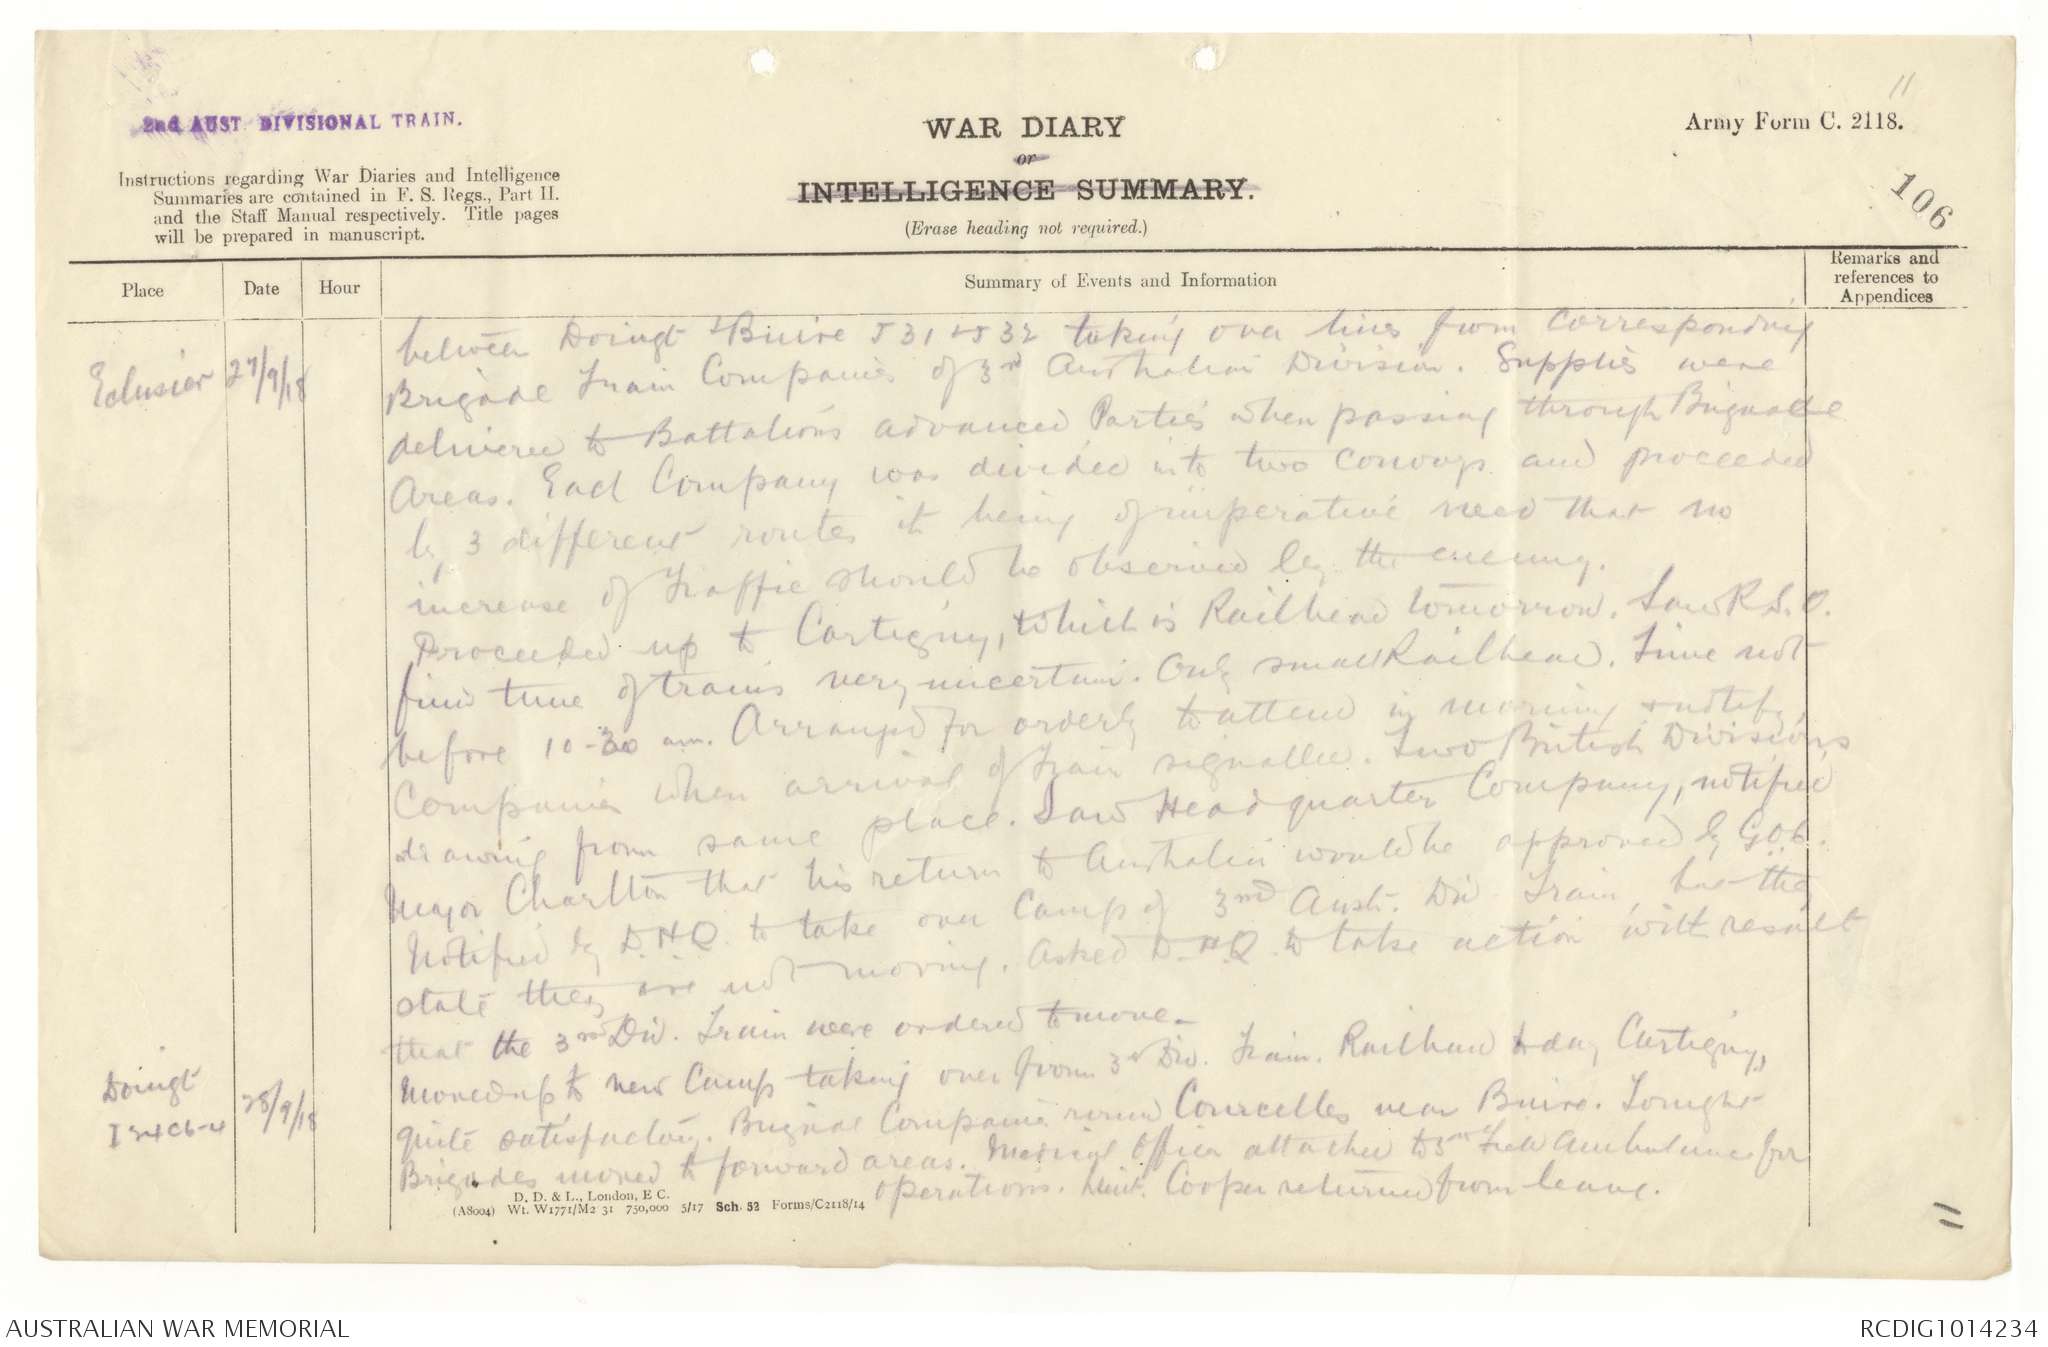 11
2nd AUST. DIVISIONAL TRAIN.
WAR DIARY
or
INTELLIGENCE SUMMARY.
(Erase heading not required.)
Army Form C. 2118.
106
Instructions regarding War Diaries and Intelligence
Summaries are contained in F. S. Regs., Part II.
and the Staff Manual respectively. Title pages
will be prepared in manuscript.
Place
Date
Hour
Summary of Events and Information
Remarks and
references to
Appendices
Eclusier 27/9/18
between Doingt & Buire J 31 & J 32 taking over lines from corresponding
Brigade Train Companies of 3rd Australian Division. Supplies were
delivered to Battalions advanced Parties when passing through Brigade
Areas. Each Company was divided into two convoys and proceeded
by 3 different routes it being of imperative need that no
increase of Traffic should be observed by the enemy.
Proceeded up to Cartigny, which is Railhead tomorrow. Saw R.S.O.
find time of trains very uncertain. Only small Railhead. Time not
before 10-30 am. Arranged for orderly to attend in morning & notify
Companies when arrival of Train signalled. Two British Divisions
drawing from same place. Saw Headquarter Company, notified
Major Charlton that his return to Australia would be approved by G.O.C.
Notified by D.H.Q. to take over Camp of 3rd Aust. Div. Train, but they
state they are not moving. Asked D.H.Q. to take action with result
that the 3rd Div. Train were ordered to move.
Doingt
I 34 c 6-4
28/9/18
Moved up to new Camp taking over from 3rd Div. Train. Railhead today Cartigny,
quite satisfactory. Brigade Companies round Courcelles near Buire. Tonight
Brigades moved to forward areas. Medical Officer attached to 5th Field Ambulance for
operations. Lieut. Cooper returned from leave.
D. D. & L., London, E C.
(A8004) Wt. W1771/M2 31 750,000 5/17 Sch. 52 Forms/C2118/14
AUSTRALIAN WAR MEMORIAL
RCDIG1014234